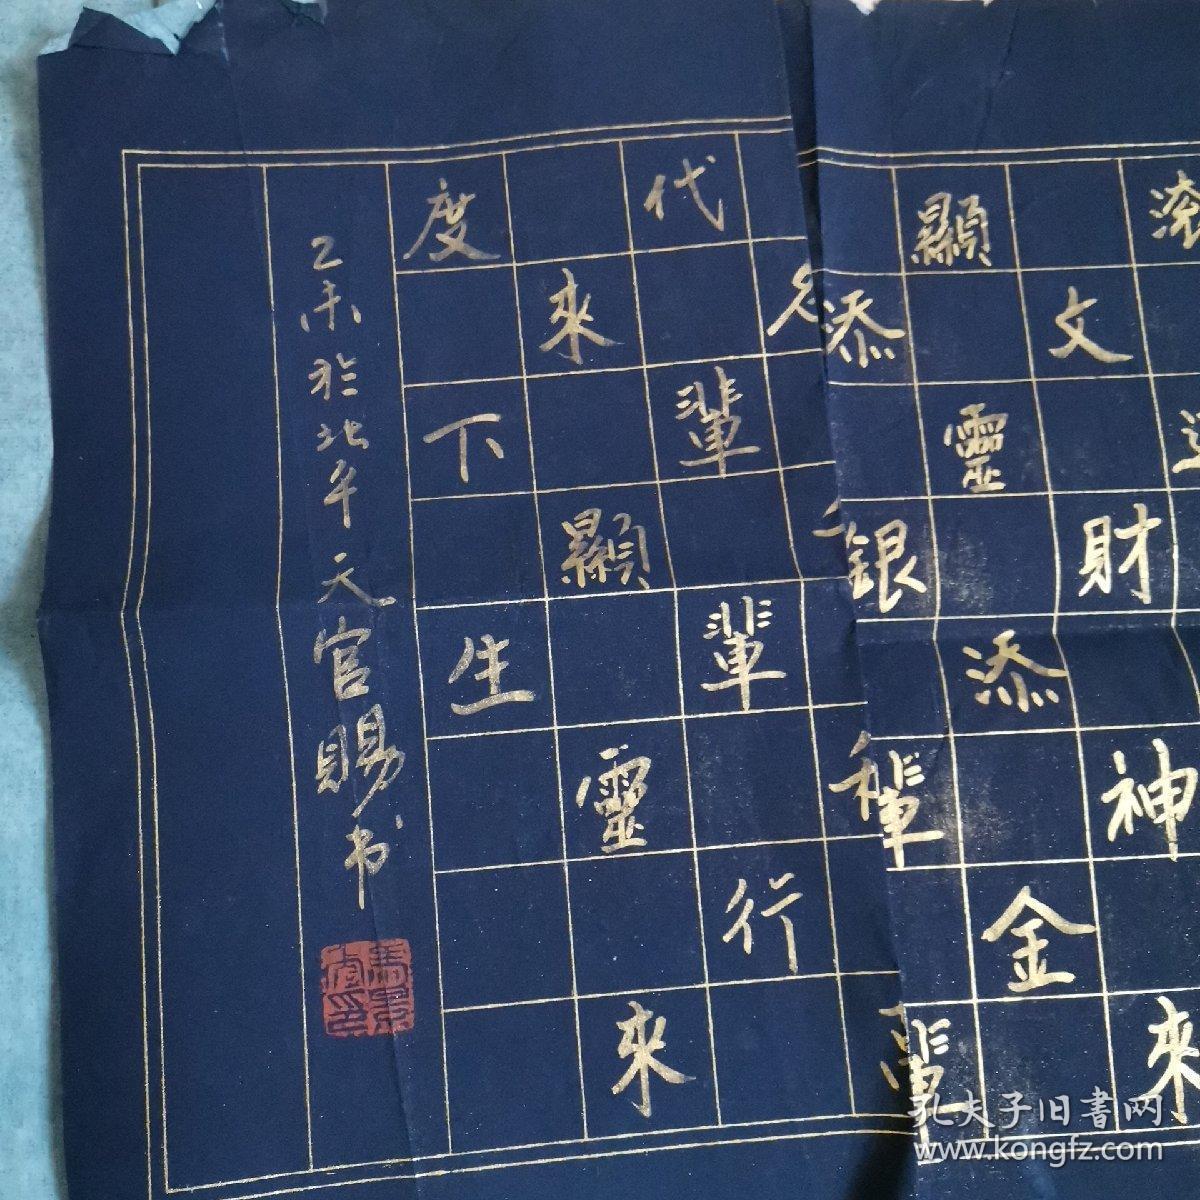 滚
財
神
來
顯
文
靈
添
金
添
銀
輩
輩
代
輩
輩
行
來
顯
靈
來
度
下
生
乙未於北平天官賜书
孔夫子旧書网
www.kongfz.com